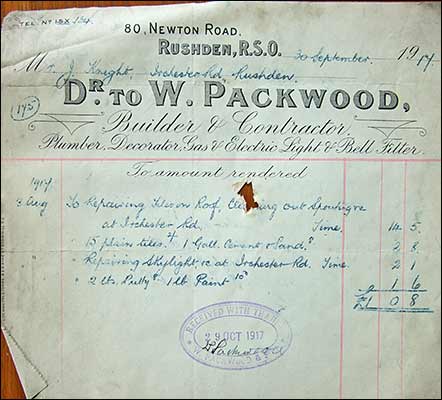 TEL. Nº 15X 134
80, NEWTON ROAD,
RUSHDEN, R.S.O. 30 September 1917.
Mr. J. Knight, Irchester Rd, Rushden.
DR. TO W. PACKWOOD,
Builder & Contractor,
Plumber, Decorator, Gas & Electric Light & Bell Fitter.
To amount rendered
1917
3 Aug To Repairing Tiles on Roof, Clearing out Spouting &c
at Irchester Rd. Time. 14 5
" 15 plain tiles. 1 Gall. Cement & Sand. 2 8
" Repairing Skylight &c at Irchester Rd. Time. 2 1
" 2 lbs Putty 1 lb Paint 10d 1 6
£1 0 8
RECEIVED WITH THANKS
29 OCT 1917
W. PACKWOOD